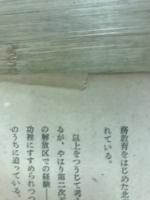 務教育をはじめた北
れている。
以上をつうじて考
るが、やはり第二次
の解放区での経験—
功裡にすすめられつつ
のうちに迫っている。